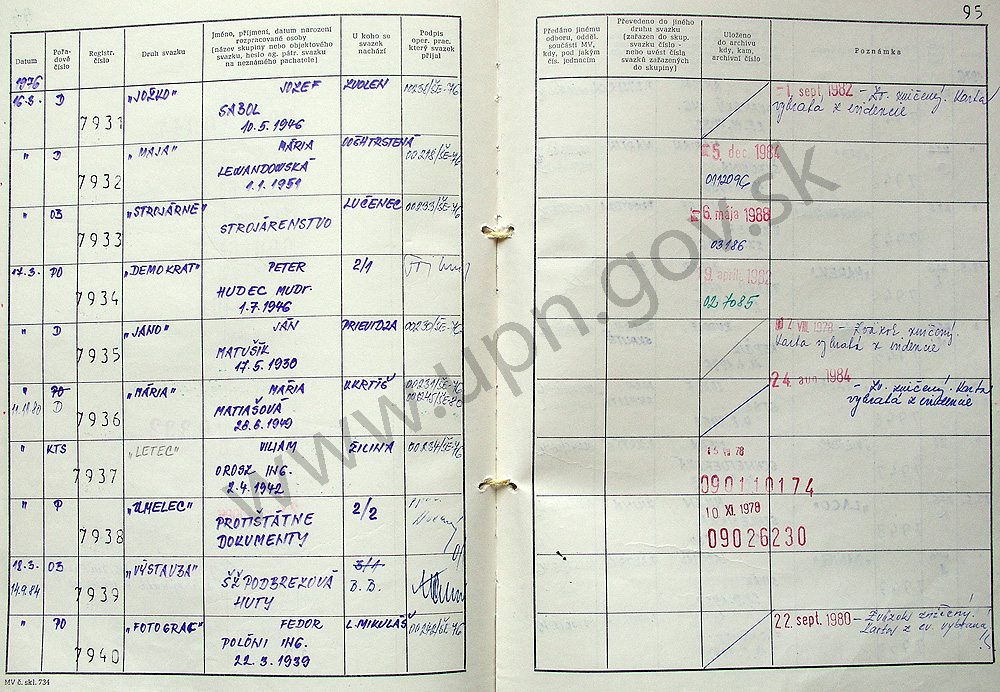 95
Datum
Pořa-
dové
číslo
Registr.
číslo
Druh svazku
Jméno, příjmení, datum narození
rozpracované osoby
(název skupiny nebo objektového
svazku, heslo ag. pátr. svazku
na neznámého pachatele)
U koho se
svazek
nachází
Podpis
oper. prac.
který svazek
přijal
Předáno jinému
odboru, odděl.
součásti MV,
kdy, pod jakým
čís. jednacím
Převedeno do jiného
druhu svazku
(zařazen do skup.
svazku číslo -
nebo uvést čísla
svazků zařazených
do skupiny)
Uloženo
do archivu
kdy, kam,
archivní číslo
Poznámka
1976
16.3. D 7931 "JOŽKO" JOZEF ZVOLEN
SABOL
10.5.1946
-1. sept. 1982 - Zv. zničený. Karta
vybratá z evidencie
" D 7932 "MAJA" MÁRIA
LEWANDOWSKÁ
1.1.1951
00218/ŠE-76
5. dec. 1984
" 03 7933 "STROJÁRNE" STROJÁRENSTVO LUČENEC 00233/ŠE-76
6. mája 1988
03186
17.3. PO 7934 "DEMOKRAT" PETER 2/1
HUDEC MUDr.
1.7.1946
027085
" D 7935 "JANO" JÁN PRIEVIDZA 00230/ŠE-76
MATUŠÍK
17.5.1930
VIII. 1978 - Zväzok zničený
karta vybratá z evidencie
" PO 7936 "MÁRIA" MÁRIA V.KRTÍŠ 00231/ŠE-76
11.11.80 D MATIAŠOVÁ
28.6.1949
24. aug. 1984 - Zv. zničený. Karta
vybratá z evidencie
" KTS 7937 "LETEC" VILIAM ŽILINA 00234/ŠE-76
OROSZ ING.
2.4.1942
090110174
" P 7938 "UMELEC" PROTIŠTÁTNE 2/2
DOKUMENTY
10. XI. 1978
09026230
18.3. 03 7939 "VÝSTAVBA" ŠŽ PODBREZOVÁ 3/1
14.9.84 HUTY B.B.
" PO 7940 "FOTOGRAF" FEDOR L.MIKULÁŠ 00242/ŠE-76
POLÓNI ING.
22.3.1939
22. sept. 1980 - Zväzok zničený.
z ev. vybratá
MV č. skl. 734
www.upn.gov.sk